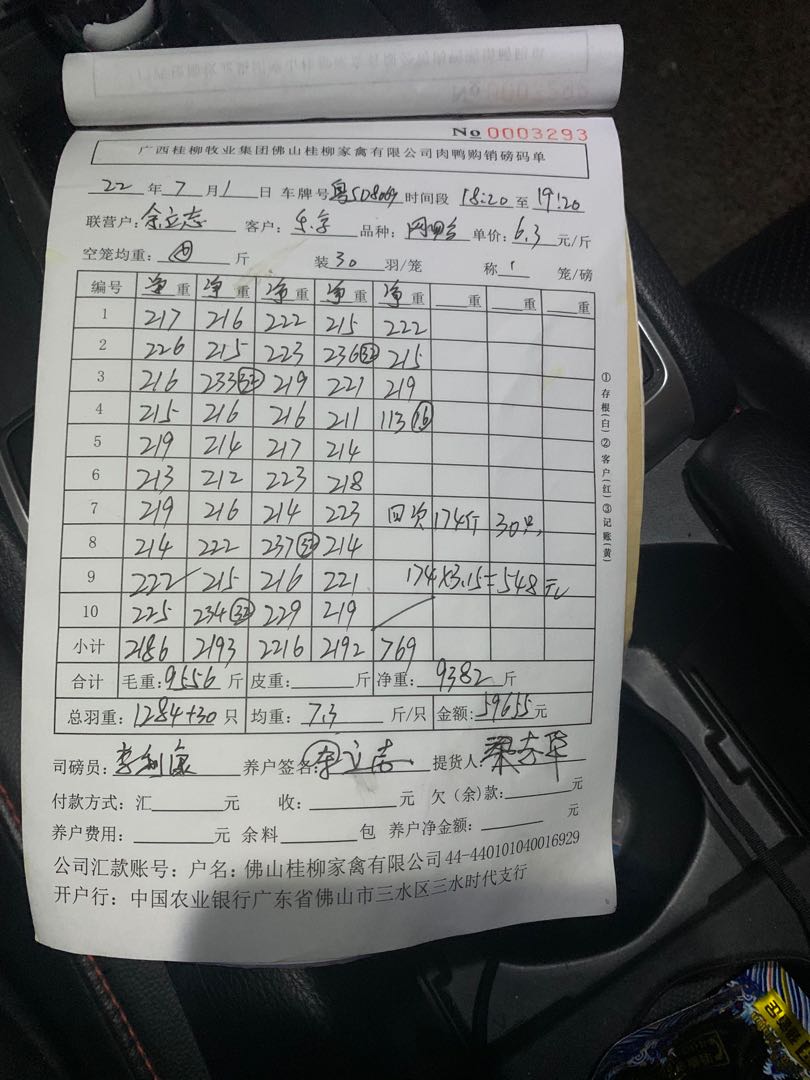 No 0003293
广西桂柳牧业集团佛山桂柳家禽有限公司肉鸭购销磅码单
22 年 7 月 1 日 车牌号 时间段 18:20 至 19:20
联营户: 余立志 客户: 品种: 单价: 6.3 元/斤
空笼均重: 斤 装 30 羽/笼 称 1 笼/磅
编号 净重 净重 净重 净重 净重 重 重 重
1 217 216 222 215 222
2 226 215 223 236(32) 215
3 216 233(32) 219 221 219
4 215 216 216 211 113(16)
5 219 214 217 214
6 213 212 223 218
7 219 216 214 223 四次 174斤 30只
8 214 222 237(32) 214
9 222 215 216 221 174×3.15=548元
10 225 234(32) 229 219
小计 2186 2193 2216 2192 769
合计 毛重: 9556 斤 皮重: 斤 净重: 9382 斤
总羽重: 1284+30 只 均重: 7.3 斤/只 金额: 59655 元
司磅员: 养户签名: 余立志 提货人:
付款方式: 汇 元 收: 元 欠(余)款: 元
养户费用: 元 余料 包 养户净金额: 元
公司汇款账号: 户名: 佛山桂柳家禽有限公司44-440101040016929
开户行: 中国农业银行广东省佛山市三水区三水时代支行
①存根(白)②客户(红)③记账(黄)